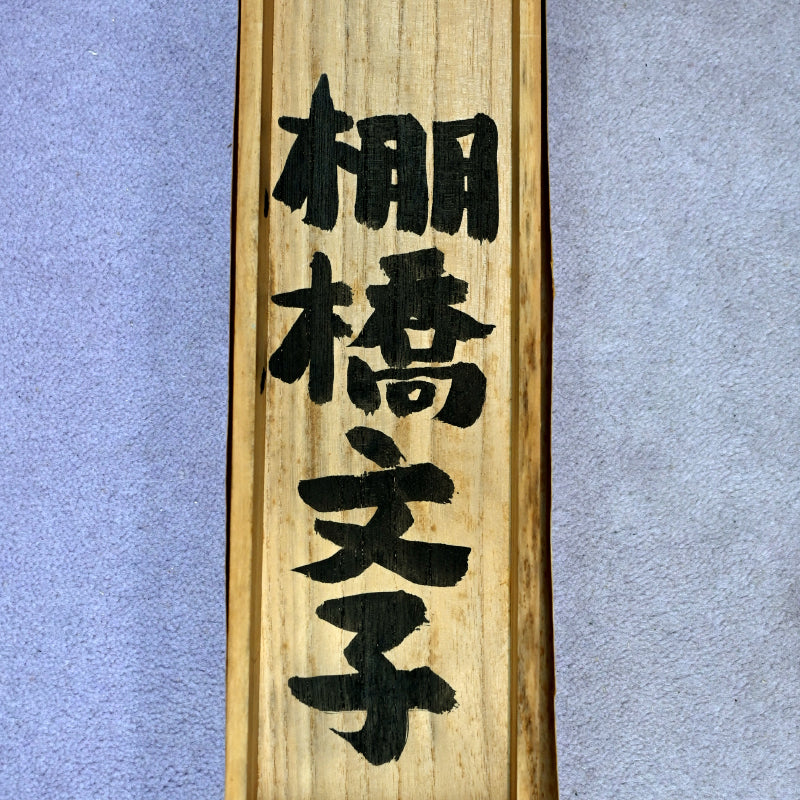 棚橋文子